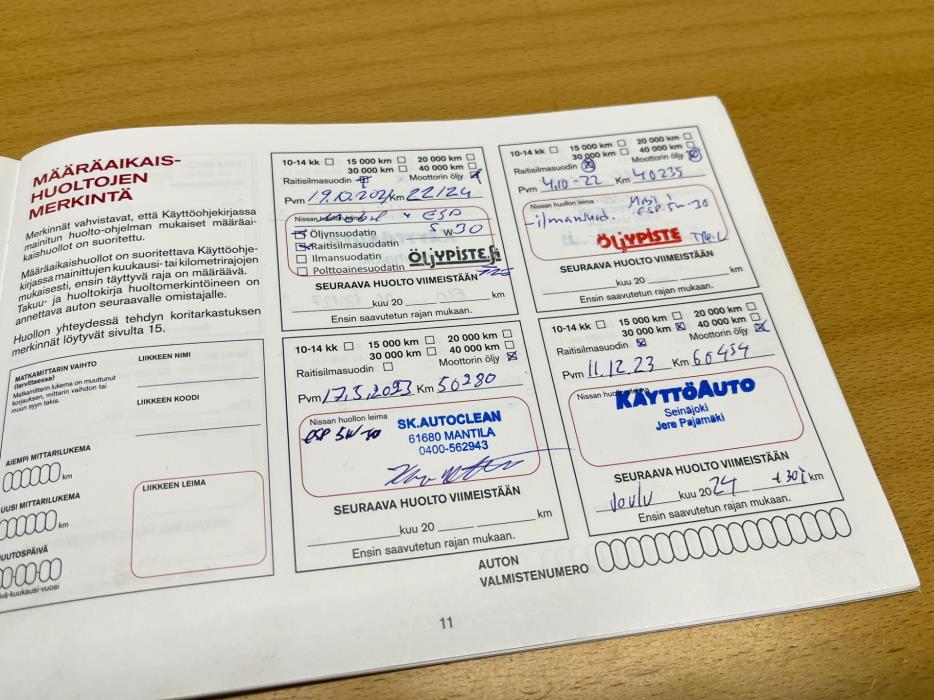 MÄÄRÄAIKAIS-
HUOLTOJEN
MERKINTÄ
Merkinnät vahvistavat, että Käyttöohjekirjassa
mainitun huolto-ohjelman mukaiset määräai-
kaishuollot on suoritettu.
Määräaikaishuollot on suoritettava Käyttöohje-
kirjassa mainittujen kuukausi- tai kilometrirajojen
mukaisesti, ensin täyttyvä raja on määräävä.
Takuu- ja huoltokirja huoltomerkintöineen on
annettava auton seuraavalle omistajalle.
Huollon yhteydessä tehdyn koritarkastuksen
merkinnät löytyvät sivulta 15.
MATKAMITTARIN VAIHTO
(tarvittaessa)
Matkamittarin lukema on muuttunut
korjauksen, mittarin vaihdon tai
muun syyn takia.
LIIKKEEN NIMI
LIIKKEEN KOODI
AIEMPI MITTARILUKEMA
km
UUSI MITTARILUKEMA
km
LIIKKEEN LEIMA
10-14 kk 15 000 km 20 000 km
30 000 km 40 000 km
Raitisilmasuodin Moottorin öljy
Pvm Km 22124
Nissan
ESP
Öljynsuodatin 5W30
Raitisilmasuodatin
Ilmansuodatin
Polttoainesuodatin
ÖLJYPISTE.fi
SEURAAVA HUOLTO VIIMEISTÄÄN
kuu 20 km
Ensin saavutetun rajan mukaan.
10-14 kk 15 000 km 20 000 km
30 000 km 40 000 km
Raitisilmasuodin Moottorin öljy
Pvm 4.10-22 Km 40235
Nissan huollon leima
-ilmansuod. Mobil 1
ESP 5w-30
ÖLJYPISTE
SEURAAVA HUOLTO VIIMEISTÄÄN
kuu 20 km
Ensin saavutetun rajan mukaan.
10-14 kk 15 000 km 20 000 km
30 000 km 40 000 km
Raitisilmasuodin Moottorin öljy
Pvm 17.5.2023 Km 50280
Nissan huollon leima
ESP 5W-30
SK.AUTOCLEAN
61680 MANTILA
0400-562943
SEURAAVA HUOLTO VIIMEISTÄÄN
kuu 20 km
Ensin saavutetun rajan mukaan.
10-14 kk 15 000 km 20 000 km
30 000 km 40 000 km
Raitisilmasuodin Moottorin öljy
Pvm 11.12.23 Km 60454
Nissan huollon leima
KÄYTTÖAUTO
Seinäjoki
Jere Pajamäki
SEURAAVA HUOLTO VIIMEISTÄÄN
Joulu kuu 2024 km
Ensin saavutetun rajan mukaan.
AUTON
VALMISTENUMERO
11